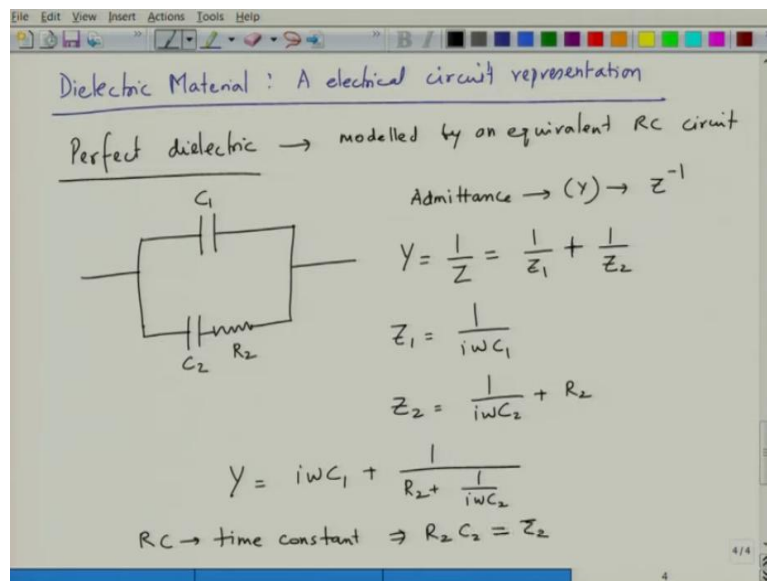 File Edit View Insert Actions Tools Help
Dielectric Material : A electrical circuit representation
Perfect dielectric → modelled by an equivalent RC circuit
Admittance → (Y) → Z^-1
C1
Y = 1/Z = 1/Z1 + 1/Z2
Z1 = 1/iωC1
C2 R2
Z2 = 1/iωC2 + R2
Y = iωC1 + 1/(R2 + 1/iωC2)
RC → time constant ⇒ R2 C2 = τ2
4/4
4